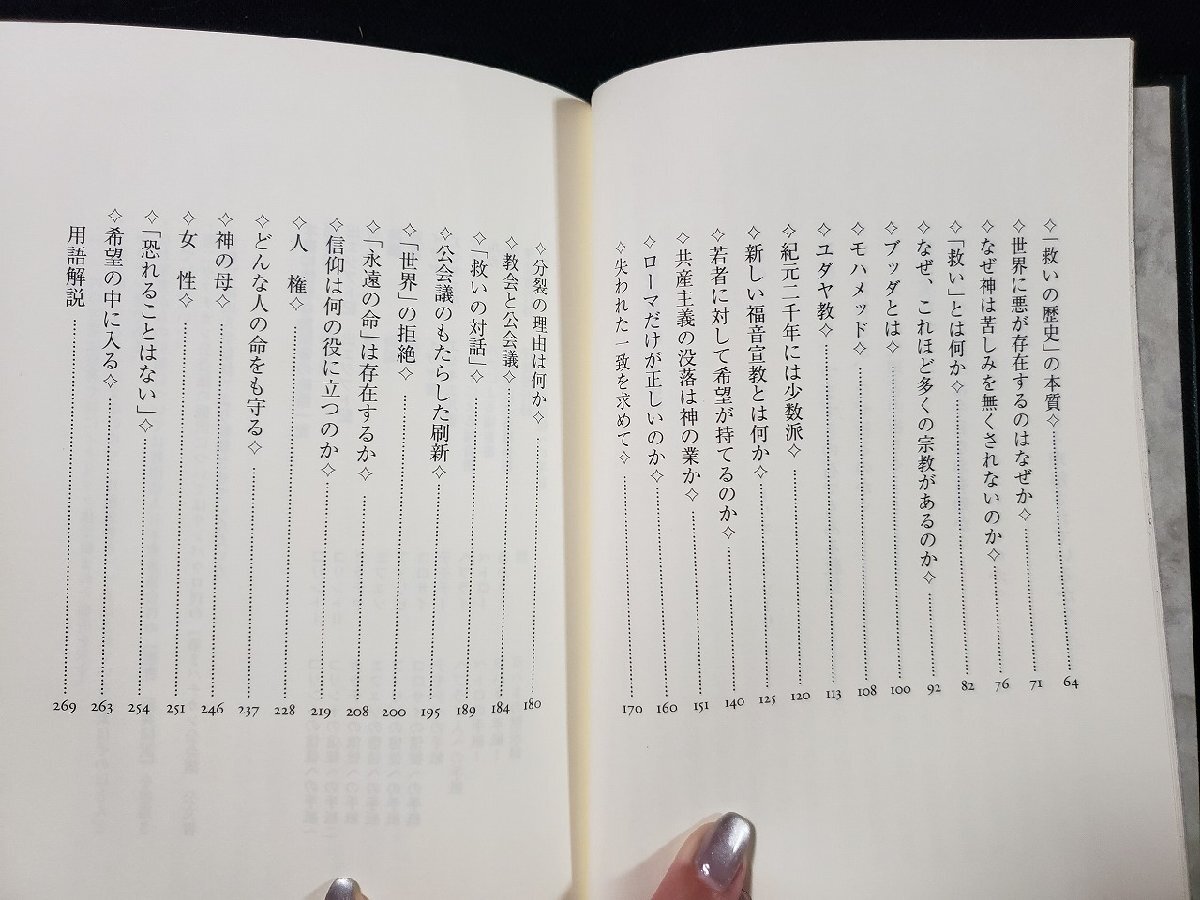 ✧「救いの歴史」の本質✧ 64
✧世界に悪が存在するのはなぜか✧ 71
✧なぜ神は苦しみを無くされないのか✧ 76
✧「救い」とは何か✧ 82
✧なぜ、これほど多くの宗教があるのか✧ 92
✧ブッダとは✧ 100
✧モハメッド✧ 108
✧ユダヤ教✧ 113
✧紀元二千年には少数派✧ 120
✧新しい福音宣教とは何か✧ 125
✧若者に対して希望が持てるのか✧ 140
✧共産主義の没落は神の業か✧ 151
✧ローマだけが正しいのか✧ 160
✧失われた一致を求めて✧ 170
✧分裂の理由は何か✧ 180
✧教会と公会議✧ 184
✧「救いの対話」✧ 189
✧公会議のもたらした刷新✧ 195
✧「世界」の拒絶✧ 200
✧「永遠の命」は存在するか✧ 208
✧信仰は何の役に立つのか✧ 219
✧人 権✧ 228
✧どんな人の命をも守る✧ 237
✧神の母✧ 246
✧女 性✧ 251
✧「恐れることはない」✧ 254
✧希望の中に入る✧ 263
用語解説 269